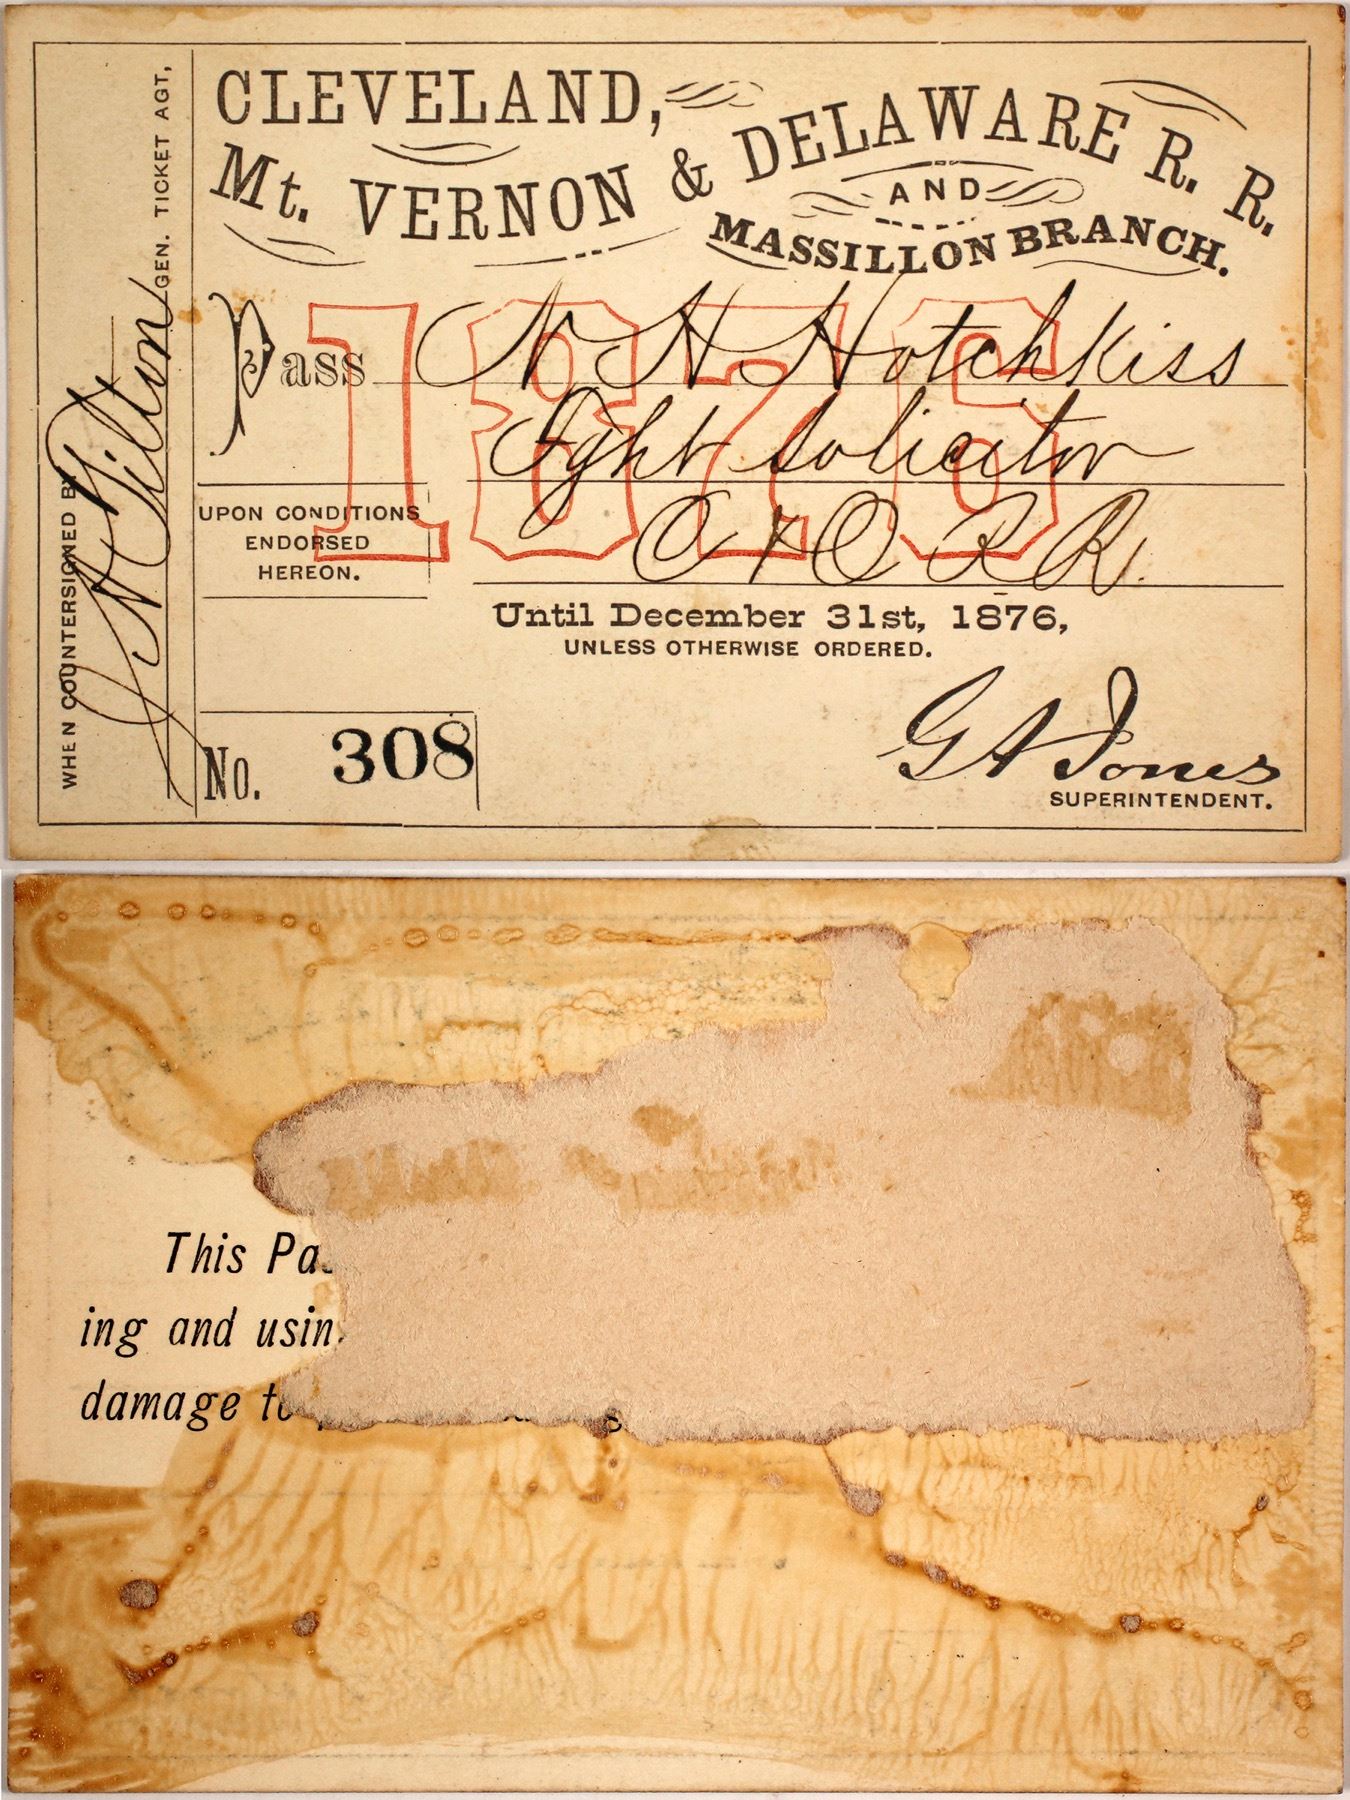 CLEVELAND,
Mt. VERNON & DELAWARE R. R.
AND
MASSILLON BRANCH.
1876
Pass N H Hotchkiss
Fght Solicitor
C & O R R.
UPON CONDITIONS
ENDORSED
HEREON.
Until December 31st, 1876,
UNLESS OTHERWISE ORDERED.
No. 308
G A Jones
SUPERINTENDENT.
WHEN COUNTERSIGNED BY Tilton GEN. TICKET AGT,
This Pa
ing and usin
damage to